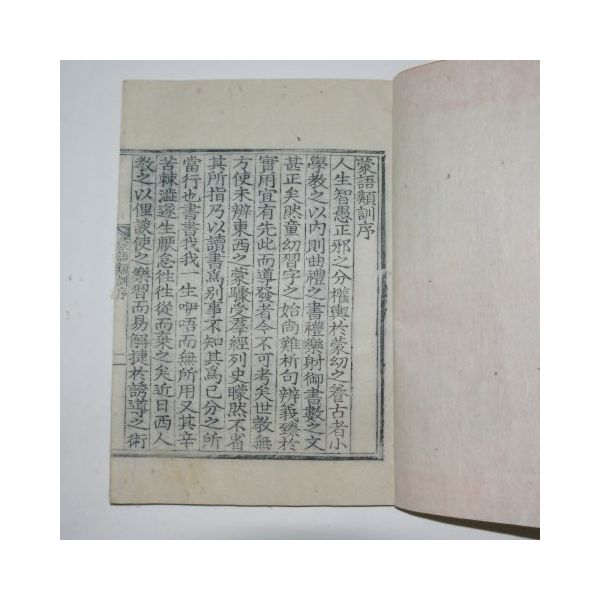 蒙語類訓序
人生智愚正邪之分權輿於蒙幼之養古者小
學教之以內則曲禮之書禮樂射御書數之文
甚正矣然童幼習字之始尚難析句辨義臻於
實用宜有先此而導發者今不可考矣世教無
方使未辨東西之蒙驟受羣經列史矇然不省
其所指乃以讀書爲別事不知其爲己分之所
當行也書書我我一生咿唔而無所用又其辛
苦棘澁遂生厭怠徃徃從而棄之矣近日西人
教之以俚談使之樂習而易解捷於誘導之術
蒙語類訓序
一